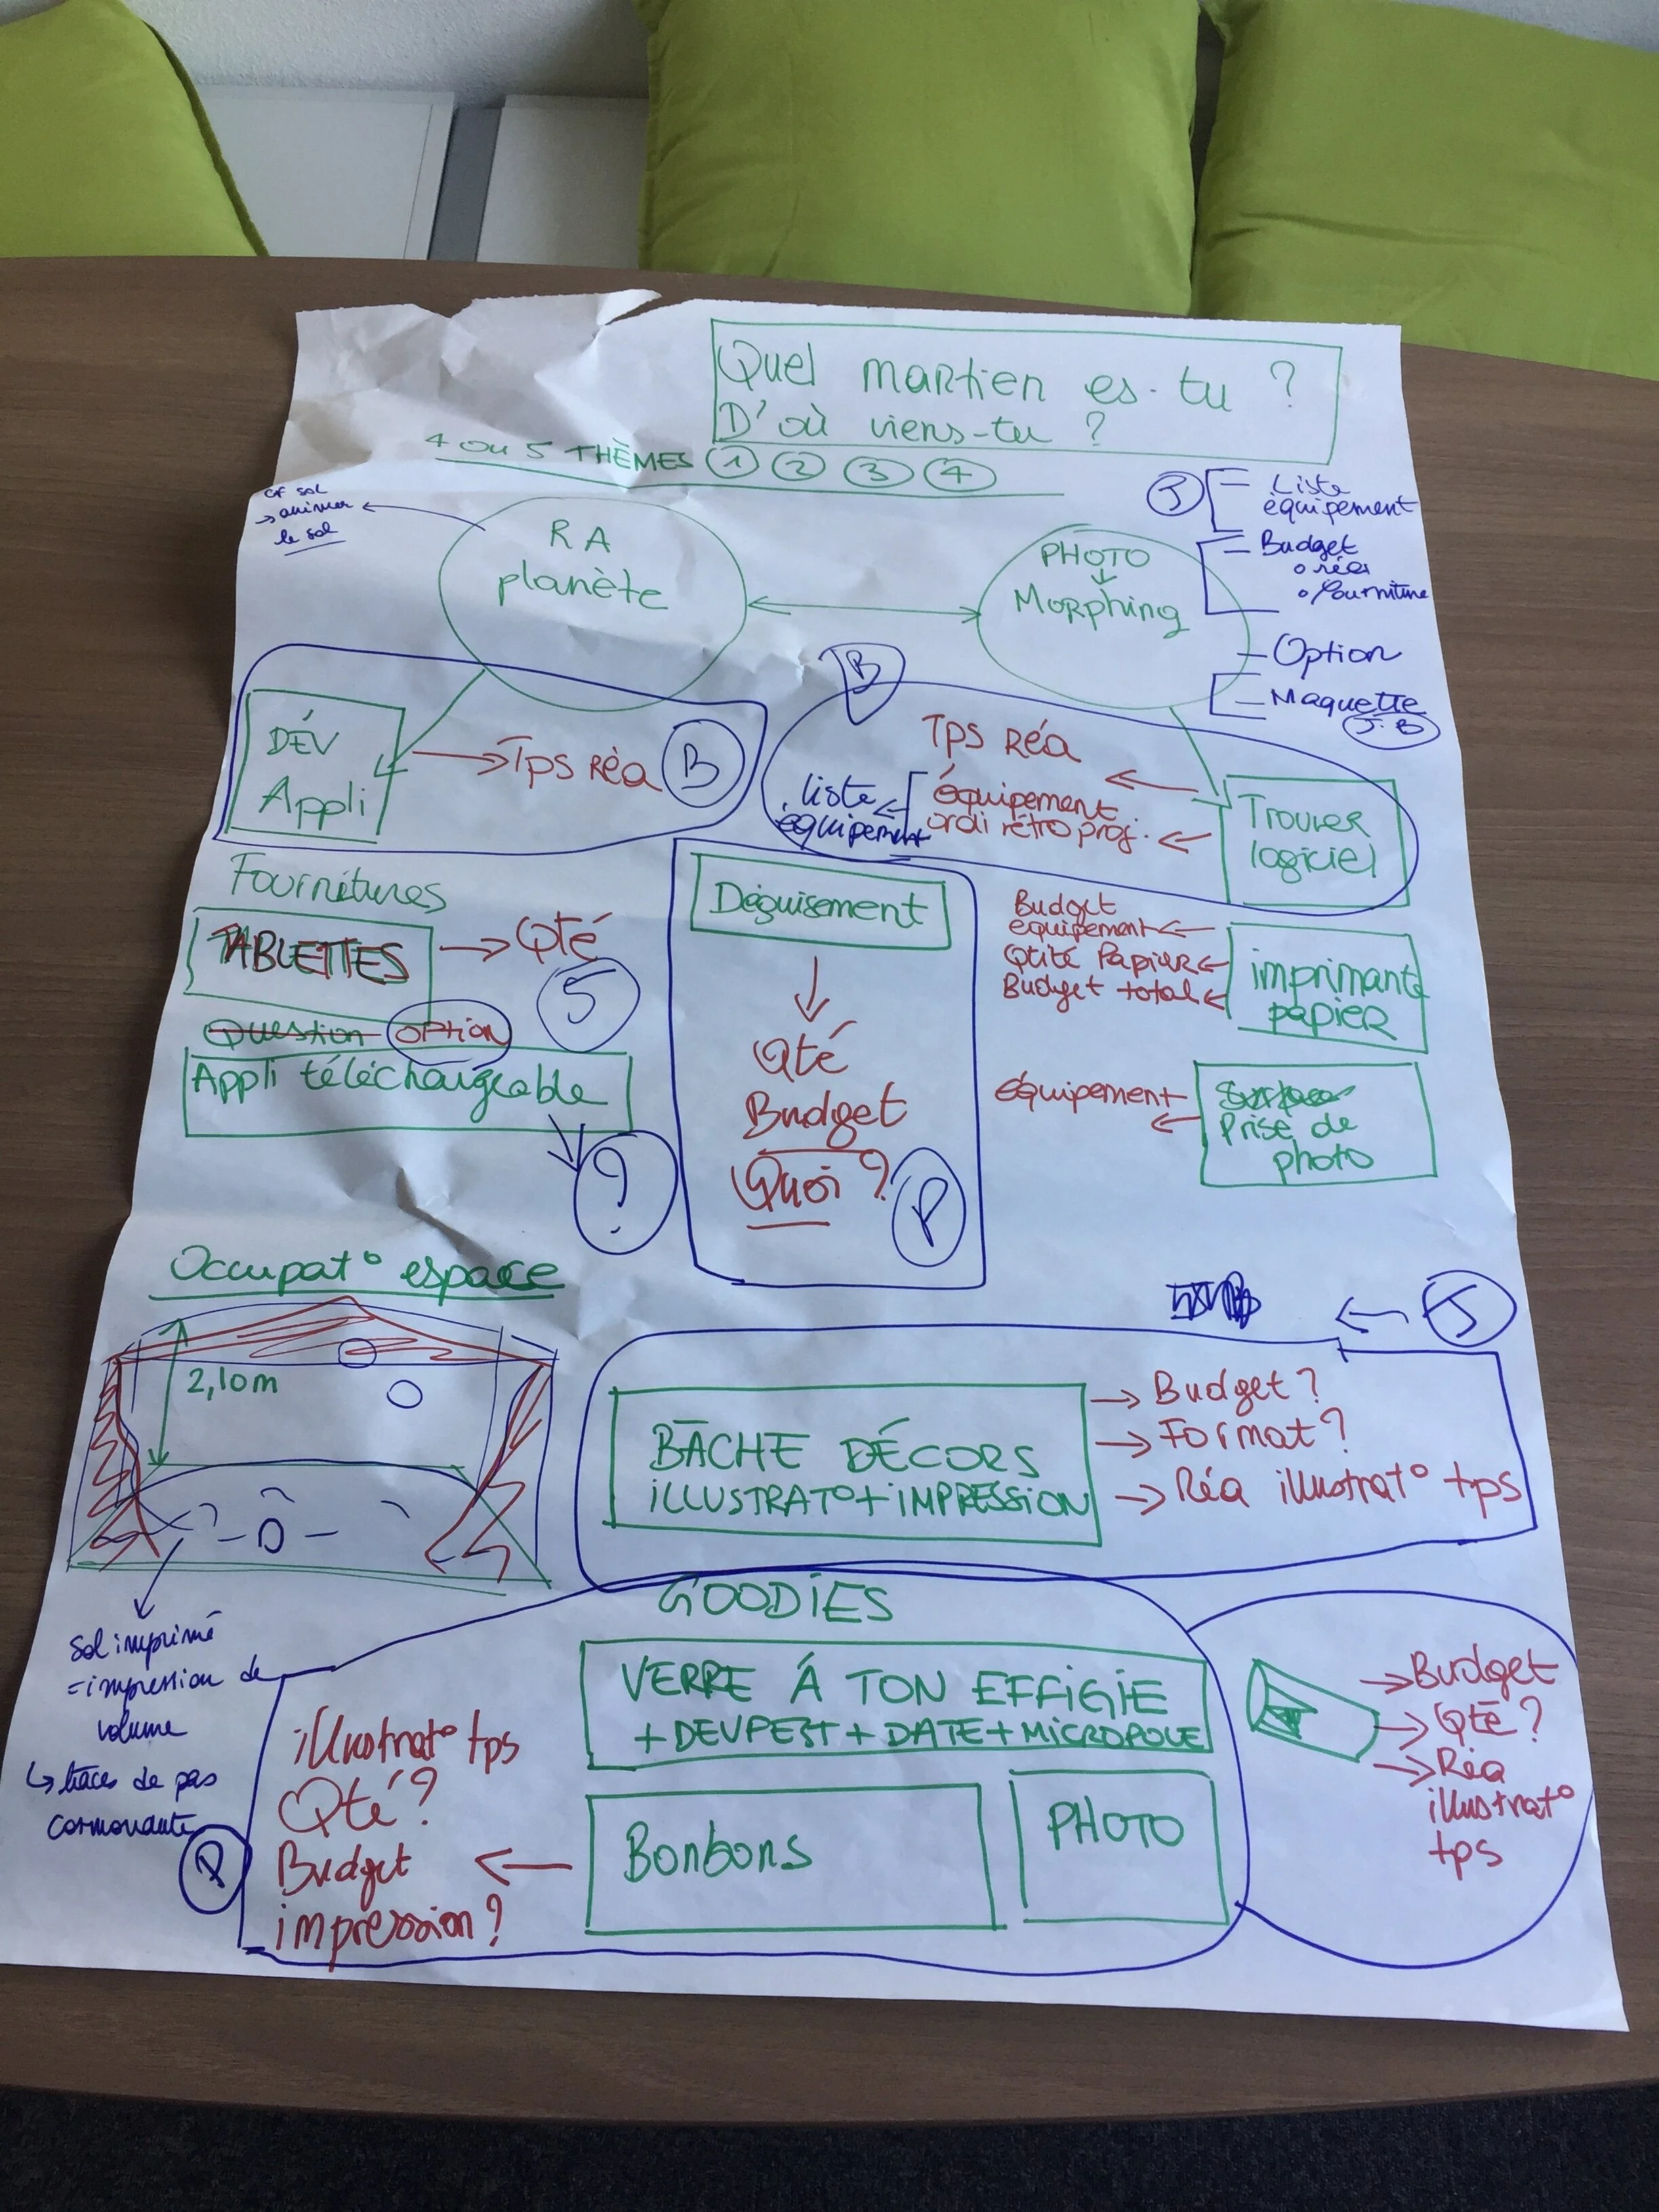 Quel martien es-tu ?
D'où viens-tu ?
4 ou 5 THÈMES 1 2 3 4
cf sol
→ animer
le sol
RA
planète
PHOTO
↓
Morphing
J
- Liste
équipement
- Budget
o réa
o fourniture
- Option
- Maquette
J-B
DÉV
Appli
→ Tps Réa
B
B
Tps Réa
équipement
ordi rétro proj.
liste
équipement
Trouver
logiciel
Fournitures
TABLETTES
→ Qté
5
Question option
Appli téléchargeable
?
Déguisement
Qté
Budget
Quoi ?
P
Budget
équipement
Qtité Papier
Budget total
imprimante
papier
équipement
Prise de
photo
Occupat° espace
2,10m
Sol imprimé
= impression de
volume
↳ traces de pas
J
BÂCHE DÉCORS
iLLUSTRAT° + iMPRESSiON
→ Budget ?
→ Format ?
→ Réa illustrat° tps
GOODiES
VERRE À TON EFFiGiE
+ DEVFEST + DATE + MiCROPOLE
Bonbons
PHOTO
illustrat° tps
Qté ?
Budget
impression ?
P
→ Budget
→ Qté ?
→ Réa
illustrat°
tps